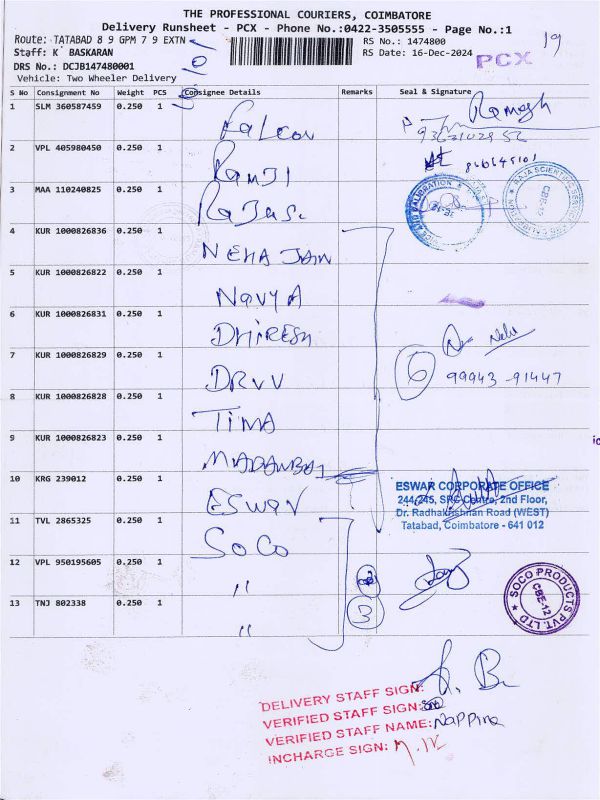 THE PROFESSIONAL COURIERS, COIMBATORE
Delivery Runsheet - PCX - Phone No.:0422-3505555 - Page No.:1
Route: TATABAD 8 9 GPM 7 9 EXTN
RS No.: 1474800
Staff: K BASKARAN
RS Date: 16-Dec-2024
PCX
19
DRS No.: DCJB147480001
Vehicle: Two Wheeler Delivery
S No Consignment No Weight PCS Consignee Details Remarks Seal & Signature
1 SLM 360587459 0.250 1 Falcon Ramesh
2 VPL 405980450 0.250 1 Ramji
3 MAA 110240825 0.250 1
4 KUR 1000826836 0.250 1 NEHA JAIN
5 KUR 1000826822 0.250 1 Navya
6 KUR 1000826831 0.250 1 DHIRESH
7 KUR 1000826829 0.250 1 DRVV 6 99943-91447
8 KUR 1000826828 0.250 1 TIMA
9 KUR 1000826823 0.250 1
10 KRG 239012 0.250 1 ESWAR
ESWAR CORPORATE OFFICE
244,245, SRC Centre, 2nd Floor,
Dr. Radhakrishnan Road (WEST)
Tatabad, Coimbatore - 641 012
11 TVL 2865325 0.250 1 SOCO
12 VPL 950195605 0.250 1 "
13 TNJ 802338 0.250 1 " 3
SOCO PRODUCTS PVT. LTD
CBE-12
DELIVERY STAFF SIGN:
VERIFIED STAFF SIGN:
VERIFIED STAFF NAME:
INCHARGE SIGN: